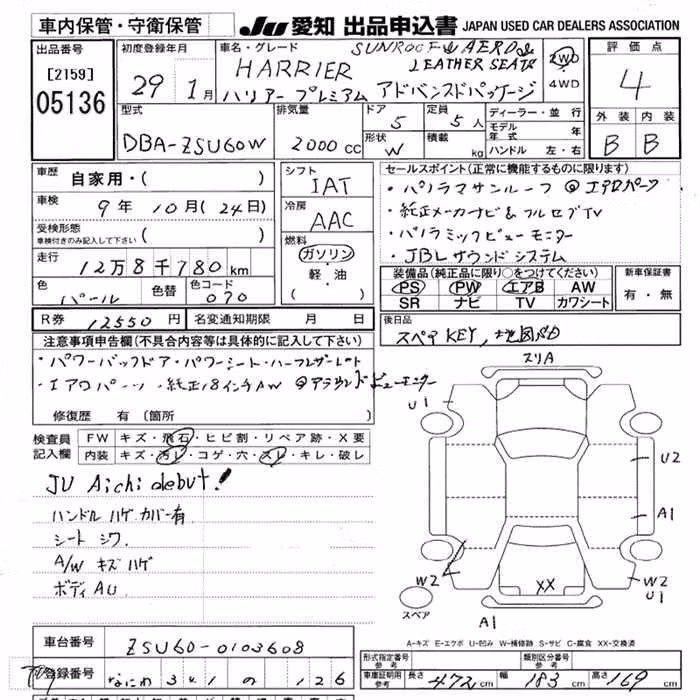 車内保管・守衛保管 JU 愛知 出品申込書 JAPAN USED CAR DEALERS ASSOCIATION
出品番号 初度登録年月 車名・グレード SUNROOF & AERO & 評価点
[2159] 29年 1月 HARRIER LEATHER SEATS 2WD 4
05136 ハリアー プレミアム アドバンスドパッケージ 4WD
型式 排気量 ドア 定員 ディーラー・並行 外装 内装
DBA-ZSU60W 2000 CC 5 5人 モデル年式 年 B B
形状 W 積載 kg ハンドル 左・右
車歴 自家用・( ) シフト IAT セールスポイント(正常に機能するものに限り)
車検 9年 10月(24日) 冷房 AAC ・パノラマサンルーフ @エアロパーツ
受検形態 ( ) ・純正メーカナビ & フルセグTV
車検付きのみ記入して下さい
走行 12万8千780km 燃料 ガソリン ・パノラミックビューモニター
軽・油 ・JBLサウンドシステム
( )
色 パール 色替 色コード 070 装備品(純正品に限り○をつけてください) 新車保証書
PS PW エアB AW 有・無
SR ナビ TV カワシート
R券 12550円 名変通知期限 月 日 後日品
スペアKEY, 地図SD
注意事項申告欄(不具合内容等は具体的に記入して下さい)
・パワーバックドア・パワーシート・ハーフレザーシート
・エアロパーツ・純正18インチAW @アラウンドビューモニター
修復歴 有 (箇所
検査員記入欄 FW キズ・飛石・ヒビ割・リペア跡・X要
内装 キズ・汚レ・コゲ・穴・スレ・キレ・破レ
JU Aichi debut!
ハンドル ハゲ カバー有
シート シワ
A/W キズ ハゲ
ボディ AU
スリA
U1
U2
A1
W2
W2
U1
XX
スペア
A1
A-キズ E-エクボ U-凹み W-補修跡 S-サビ C-腐食 XX-交換済
車台番号 ZSU60-0103608
登録番号 なにわ 341 の 126
形式指定番号 参考 類別区分番号 参考
車庫証明用 参考 長さ 472cm 幅 183cm 高さ 169cm